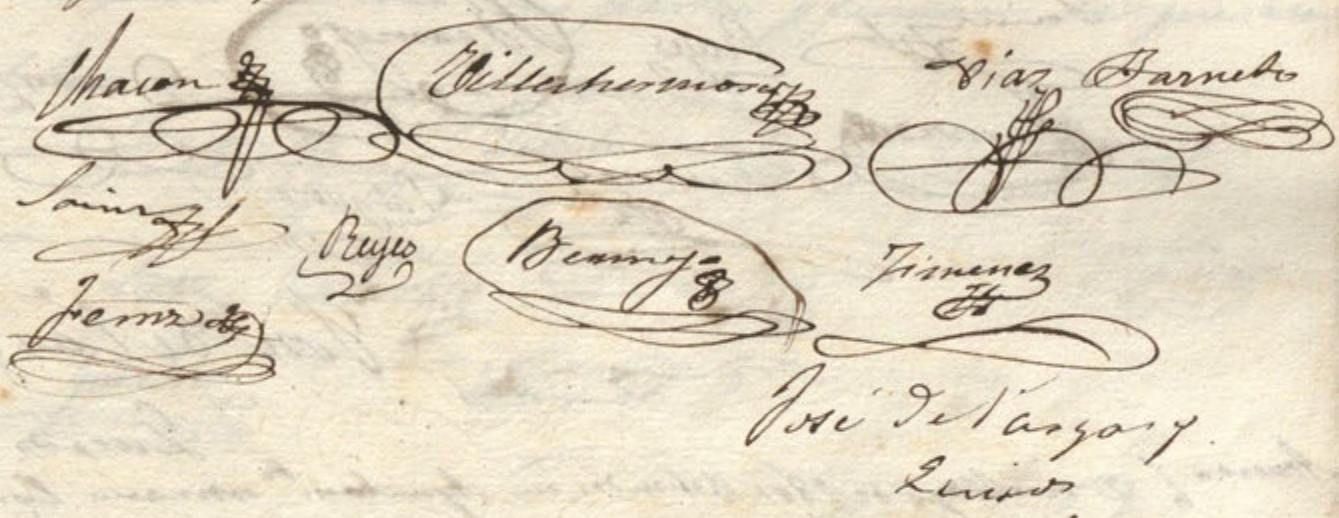 Chacon Villahermosa Diaz Barnebo
Sainz Reyes Bermejo Ximenez
Fernz
José de Vargas y
Quiros